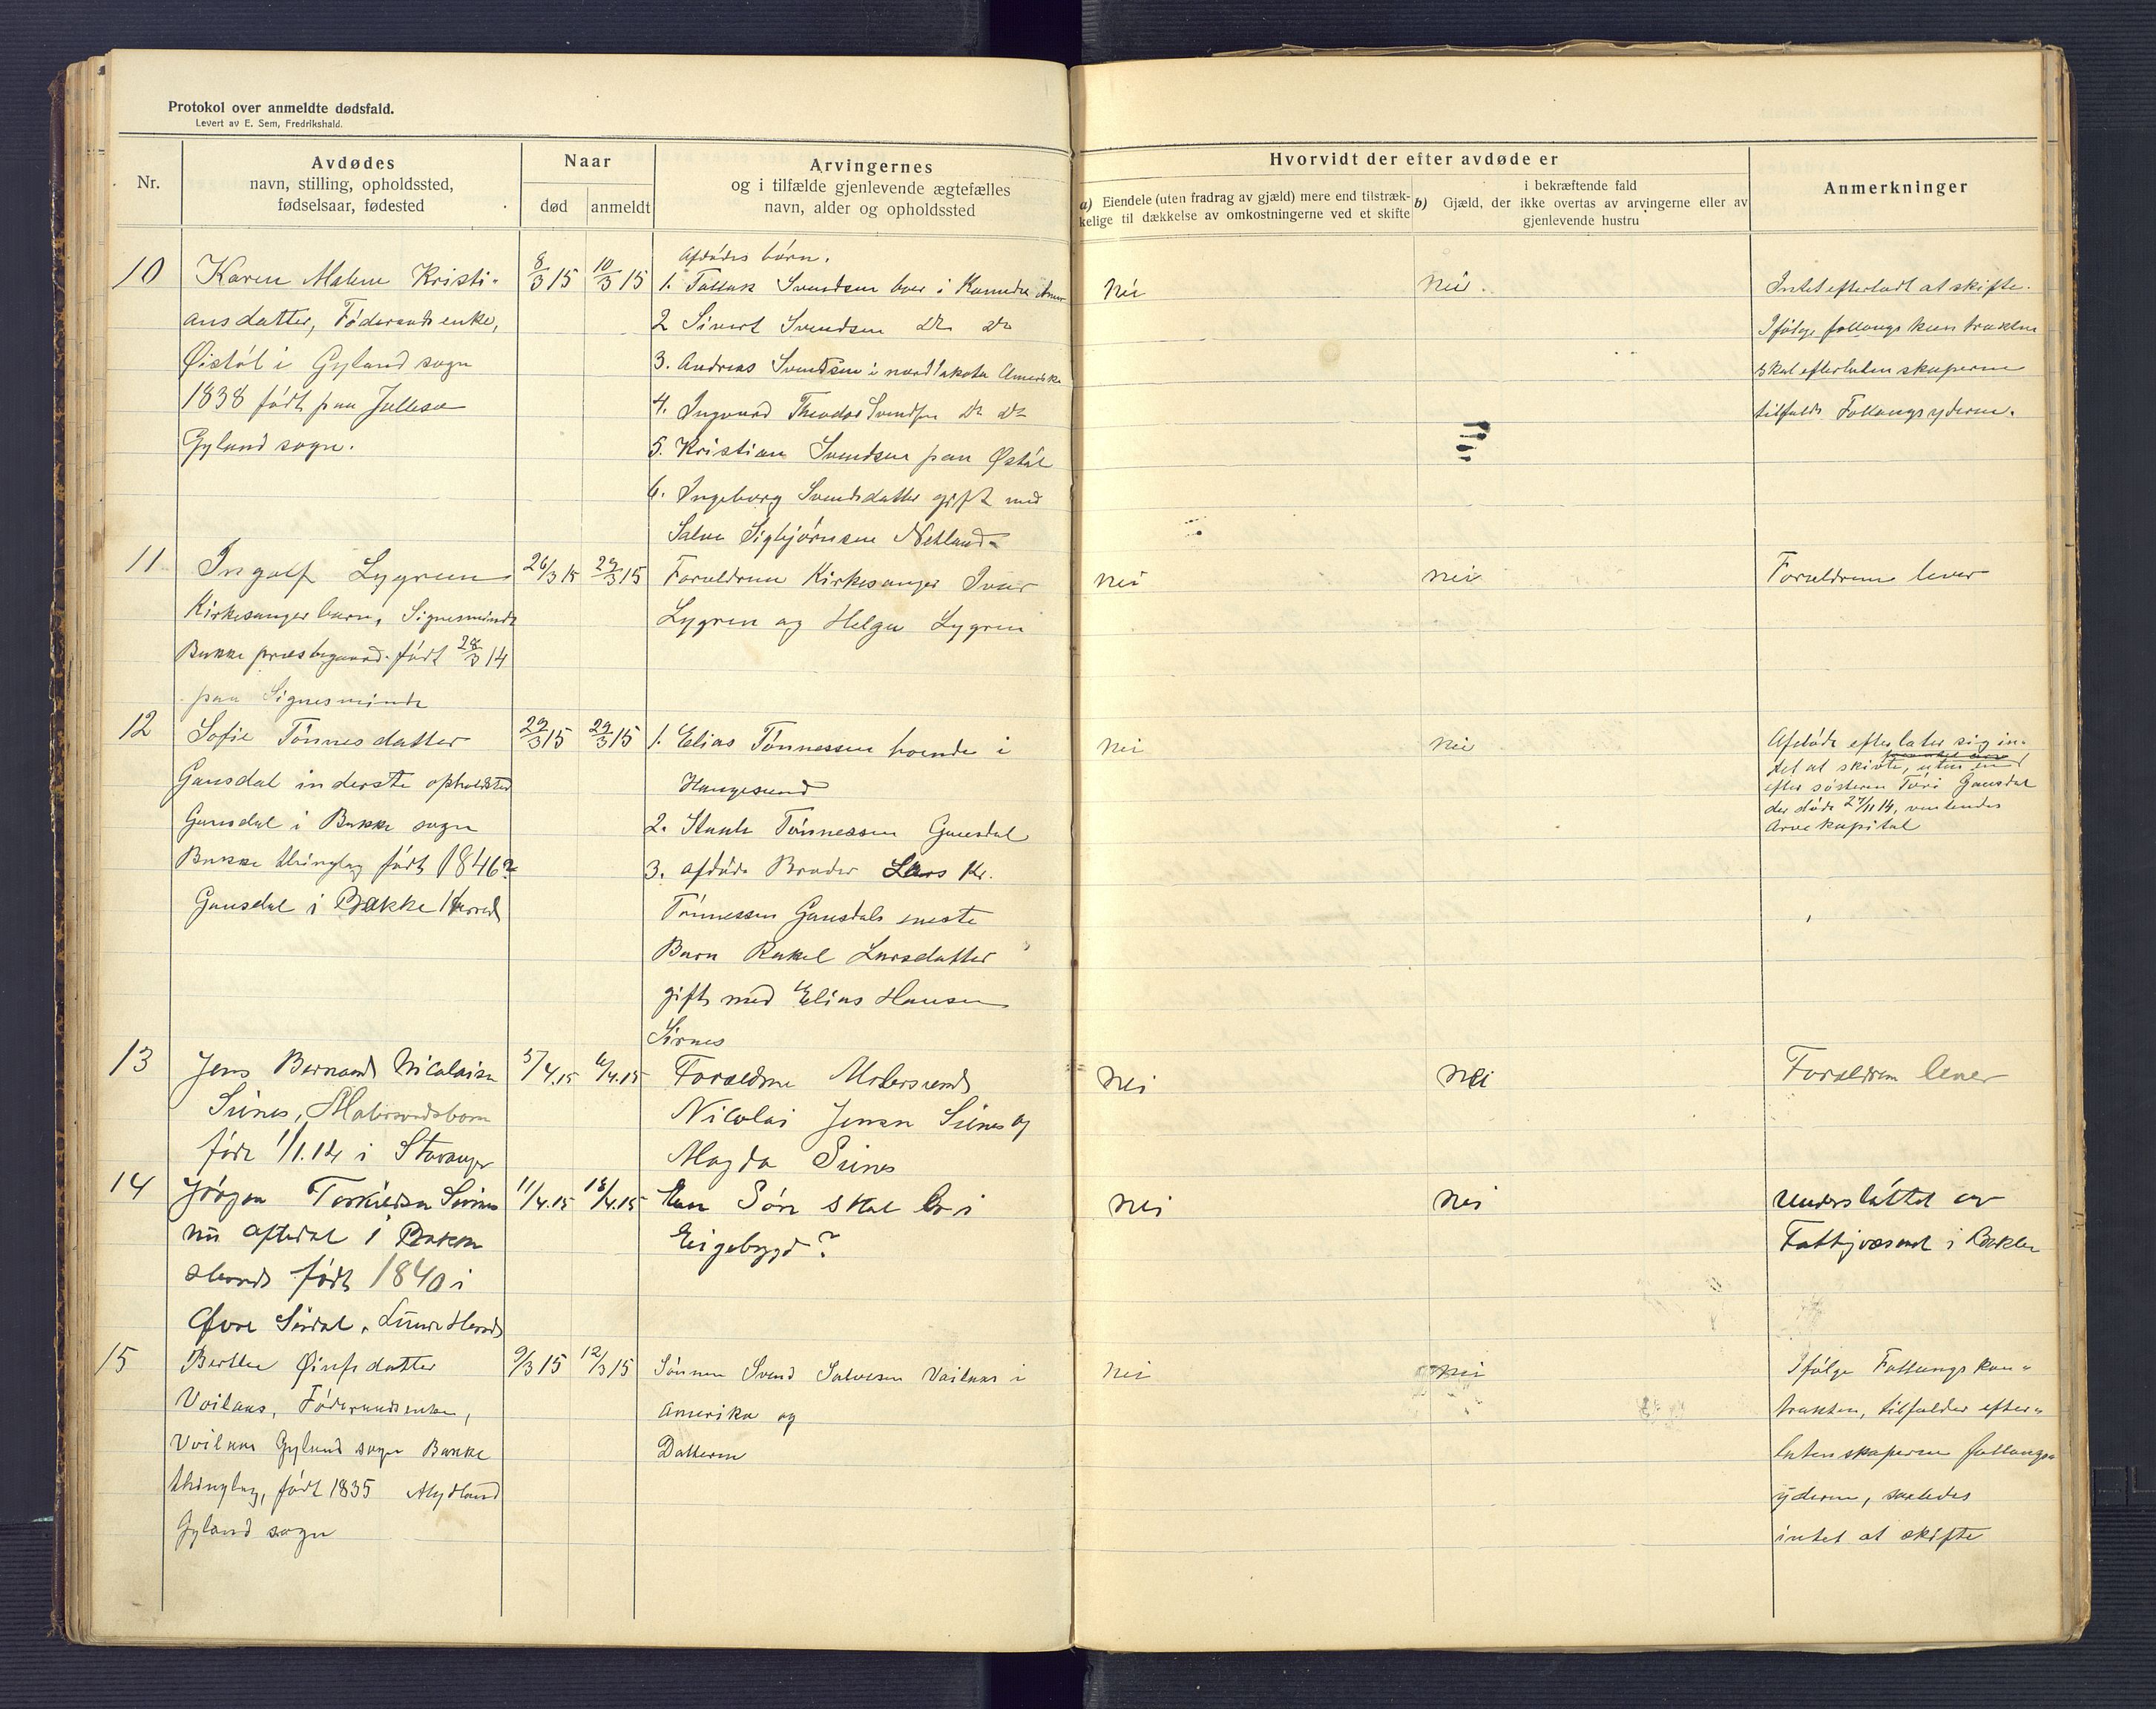 Protokol over anmeldte dødsfald.
Levert av E. Sem, Fredrikshald.
Nr.
Avdødes
navn, stilling, opholdssted,
fødselsaar, fødested
Naar
død
anmeldt
Arvingernes
og i tilfælde gjenlevende ægtefælles
navn, alder og opholdssted
Hvorvidt der efter avdøde er
a) Eiendele (uten fradrag av gjæld) mere end tilstræk-
kelige til dækkelse av omkostningerne ved et skifte
i bekræftende fald
b) Gjæld, der ikke overtas av arvingerne eller av
gjenlevende hustru
Anmerkninger
10
Karen Malene Kristi-
ansdatter, Føderaadsenke,
Øistøl i Gyland sogn
1838 født paa
Gyland sogn.
8/3 15
10/3 15
Afdødes børn.
1. Tallak Svendsen boer i
2 Sivert Svendsen Do Do
3. Andreas Svendsen i nord Dakota Amerika
4. Ingvard Theodor Svendsen Do Do
5. Kristian Svendsen paa Østøl
6. Ingeborg Svendsdatter gift med
Salve Sigbjørnsen Netland
nei
nei.
Intet efterladt at skifte.
Ifølge kontrakten
skal efterladenskaperne
tilfalde
11
Ingolf Lygren
Kirkesanger barn, Signesminde
Bakke præstegaard. født 28/3 14
paa Signesminde
26/3 15
29/3 15
Forældrene Kirkesanger Ivar
Lygren og Helga Lygren
nei
nei
Forældrene lever
12
Sofie Tønnesdatter
Gausdal inderste opholdsted
Gausdal i Bakke sogn
Bakke thinglag født 1846?
Gausdal i Bakke Herred
29/3 15
29/3 15
1. Elias Tønnessen boende i
Haugesund
2. Tønnessen Gausdal
3. afdøde Broder Lars Kr.
Tønnessen Gausdals eneste
Barn Rakel Larsdatter
gift med Elias Hansen
Sirnes
nei
nei
Afdøde efterlater sig in-
tet at skivte, uten en
efter søsteren Tori Gausdal
der døde 27/11 14, ventendes
Arvekapital
13
Jens Bernard Nicolaisen
Sirnes, Matrosbarn
født 1/1.14 i Stavanger
5/4.15
6/4.15
Forældrene
Nicolai Jensen Sirnes og
Magda Sirnes
nei
nei
Forældrene lever
14
Jørgen Torkildsen Sirnes
nu Aftedal i Bakke
Herred født 1840 i
Øvre Sirdal, Lunde Herred
11/4.15
18/4.15
En Søn skal bo i
Eigebygd?
nei
nei
Understøttet av
Fattigvæsenet i Bakke
15
Berthe
Voilaas, Føderaadsenke,
Voilaas Gyland sogn Bakke
thinglag, født 1835 Mydland
Gyland sogn
9/3 15
12/3 15
Sønnen Svend Salvesen Voilaas i
Amerika og
Datteren
nei
nei
Ifølge kon-
trakten, tilfalder efter-
latenskaperne
yderen, saaledes
intet at skifte